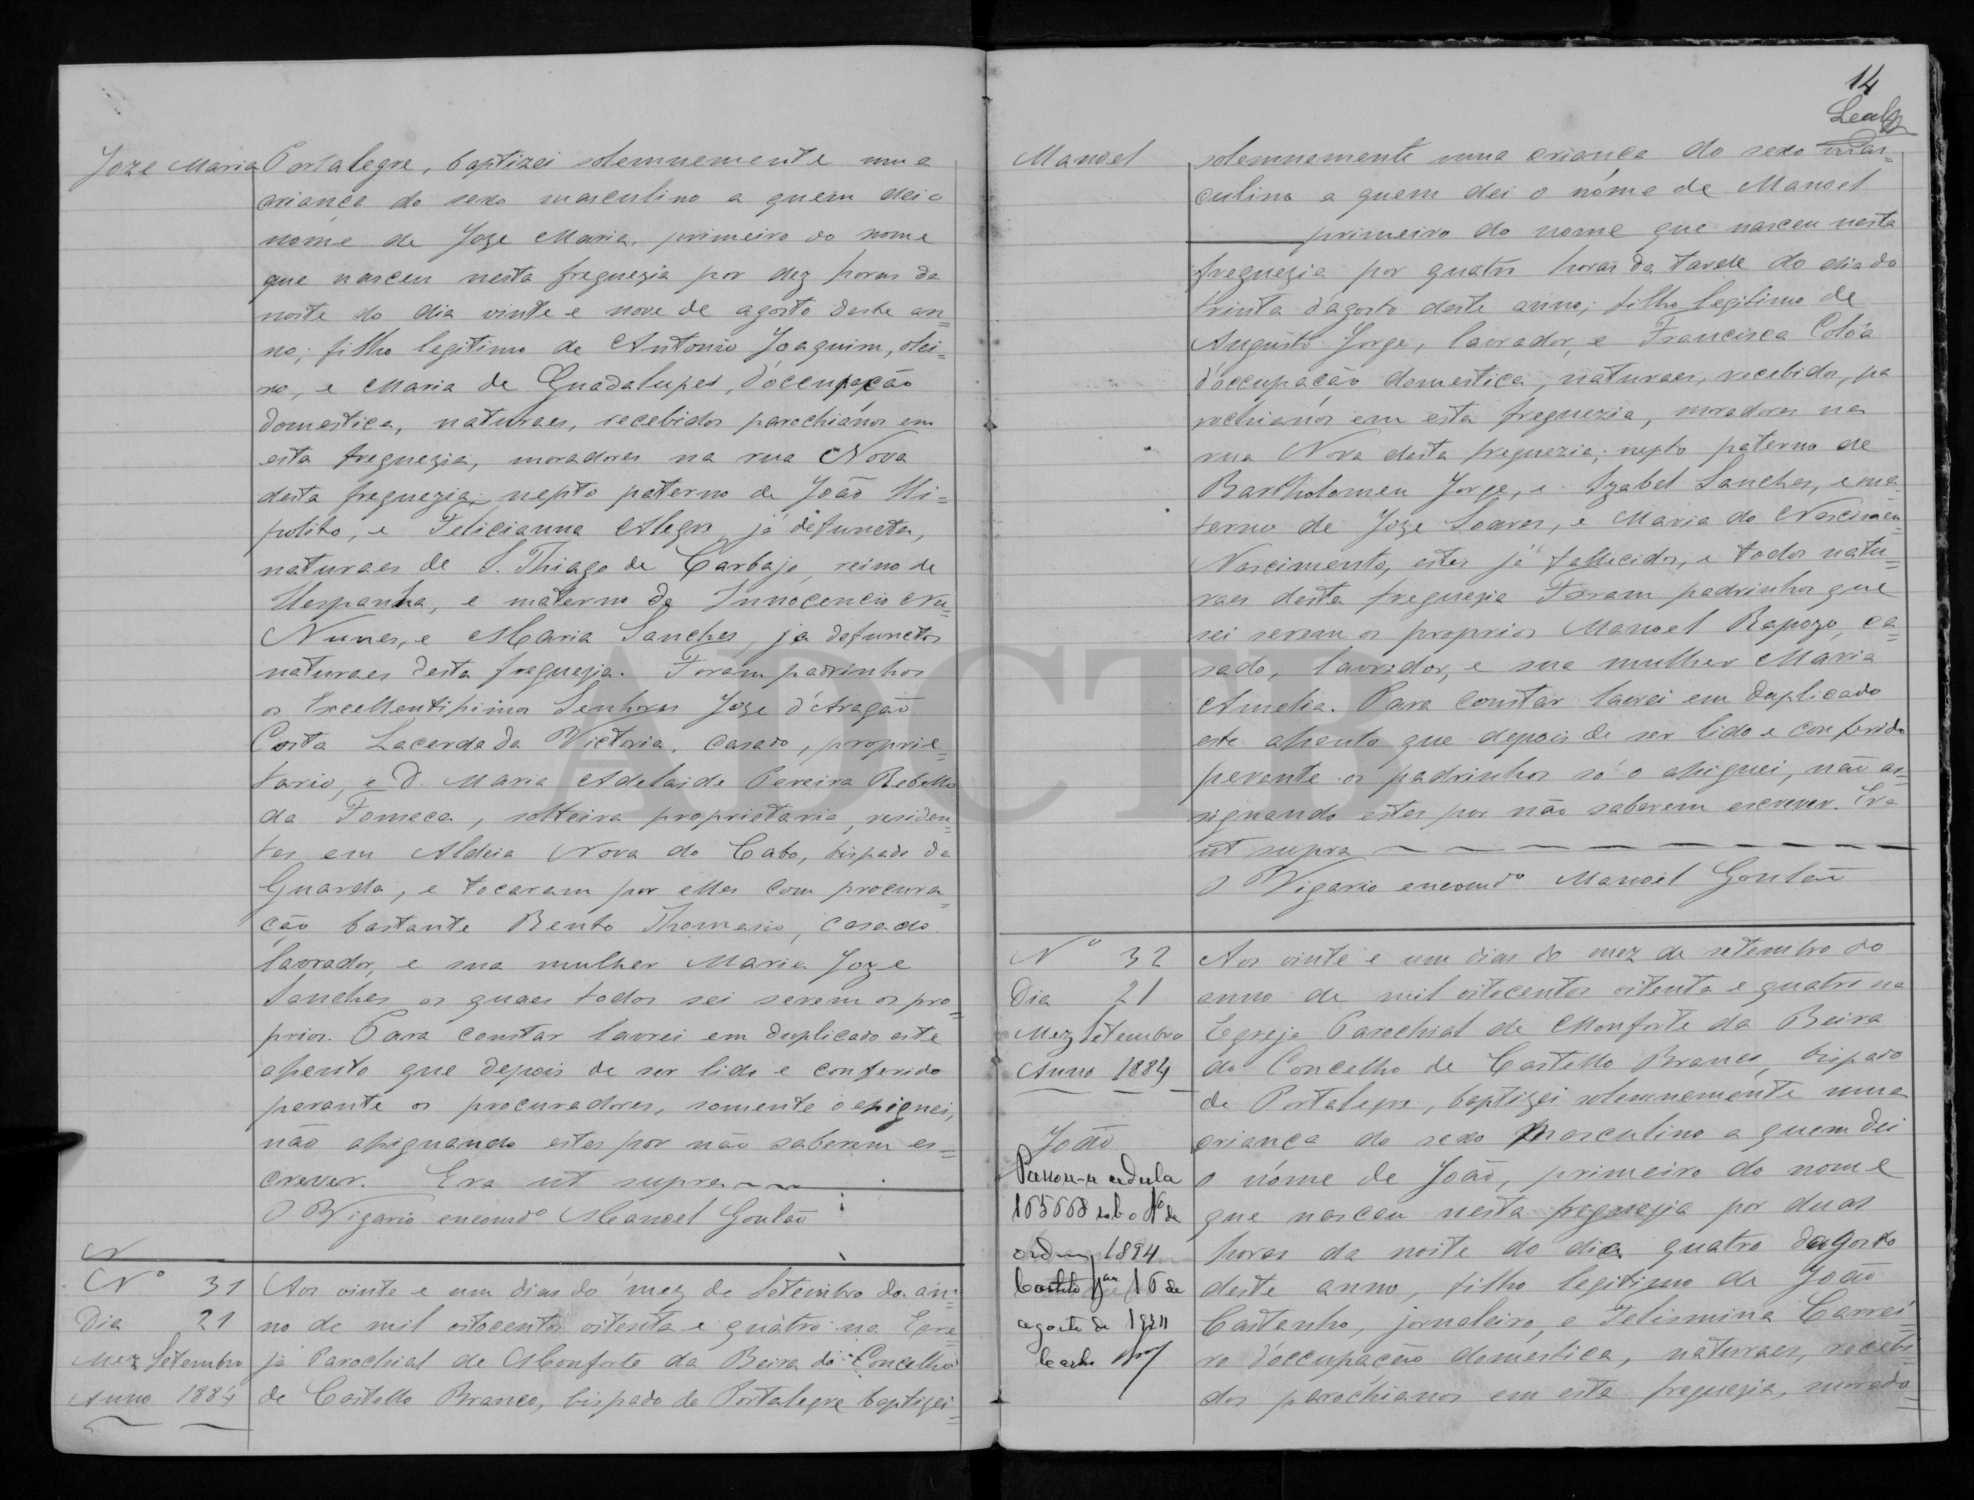 Joze Maria
Portalegre, baptizei solemnemente uma
criança do sexo masculino a quem dei o
nome de Joze Maria, primeiro do nome
que nasceu nesta freguezia por dez horas da
noite do dia vinte e nove de agosto deste an=
no; filho legitimo de Antonio Joaquim, olei=
ro, e Maria de Guadalupes, d'occupação
domestica, naturaes, recebidos parochianos em
esta freguezia, moradores na rua Nova
desta freguezia; nepto paterno de João Hi=
polito, e Felicianna Alegre já defunctos,
naturaes de S. Thiago de Carbajo, reino de
Hespanha, e materno de Innocencio Nu=
Nunes, e Maria Sanches, ja defunctos
naturaes desta freguezia. Foram padrinhos
os Excellentissimos Senhores Joze d'Aragão
Costa Lacerda da Victoria, casado, proprie=
tario, e D. Maria Adelaide Pereira Rebello
da Fonseca, solteira proprietaria, residen=
tes em Aldeia Nova do Cabo, bispado da
Guarda, e tocaram por elles com procura=
ção bastante Bento Thomasio, casado
lavrador, e sua mulher Maria Joze
Sanches os quaes todos sei serem os pro=
prios. Para constar lavrei em duplicado este
assento que depois de ser lido e conferido
perante os procuradores, somente o assignei,
não assignando estes por não saberem es=
crever. Era ut supra
O Vigario encomdo Manoel Goulão
N
Nº 31
Dia 21
Mez Setembro
Anno 1884
Aos vinte e um dias do mez de Setembro do an=
no de mil oitocentos oitenta e quatro na Egre=
ja Parochial de Monforte da Beira do Concelho
de Castello Branco, bispado de Portalegre baptizei=
14
Leal
Manoel
solemnemente uma criança do sexo mas=
culino a quem dei o nome de Manoel
primeiro do nome que nasceu nesta
freguezia por quatro horas da tarde do dia do
trinta d'agosto deste anno; filho legitimo de
Augusto Jorge, lavrador, e Francisca Colôa
d'occupação domestica, naturaes, recebidos, pa
rochianos em esta freguezia, moradores na
rua Nova desta freguezia; nepto paterno de
Bartholomeu Jorge, e Izabel Sanches, e ma=
terno de Joze Soares, e Maria do Nascimen=
Nascimento, estes já fallecidos, e todos natu=
raes desta freguezia Foram padrinhos que
sei serem os proprios Manoel Rapozo, ca=
sado, lavrador, e sua mulher Maria
Amelia. Para constar lavrei em duplicado
este assento que depois de ser lido e conferido
perante os padrinhos só o assignei, não as=
signando estes por não saberem escrever. Era
ut supra
O Vigario encomdo Manoel Goulão
Nº 32
Dia 21
Mez Setembro
Anno 1884
João
Passou-se cedula
165668 sob o Nº de
ordem 1894
Castello 16 de
agosto de
Aos vinte e um dias do mez de setembro do
anno de mil oitocentos oitenta e quatro na
Egreja Parochial de Monforte da Beira
do Concelho de Castello Branco, bispado
de Portalegre, baptizei solemnemente uma
criança do sexo masculino a quem dei
o nome de João, primeiro do nome
que nasceu nesta freguezia por duas
horas da noite do dia quatro d'agosto
deste anno, filho legitimo de João
Castanho, jornaleiro, e Felismina Carrei=
ro d'occupação domestica, naturaes, recebi=
dos parochianos em esta freguezia, morado=
ADCTB